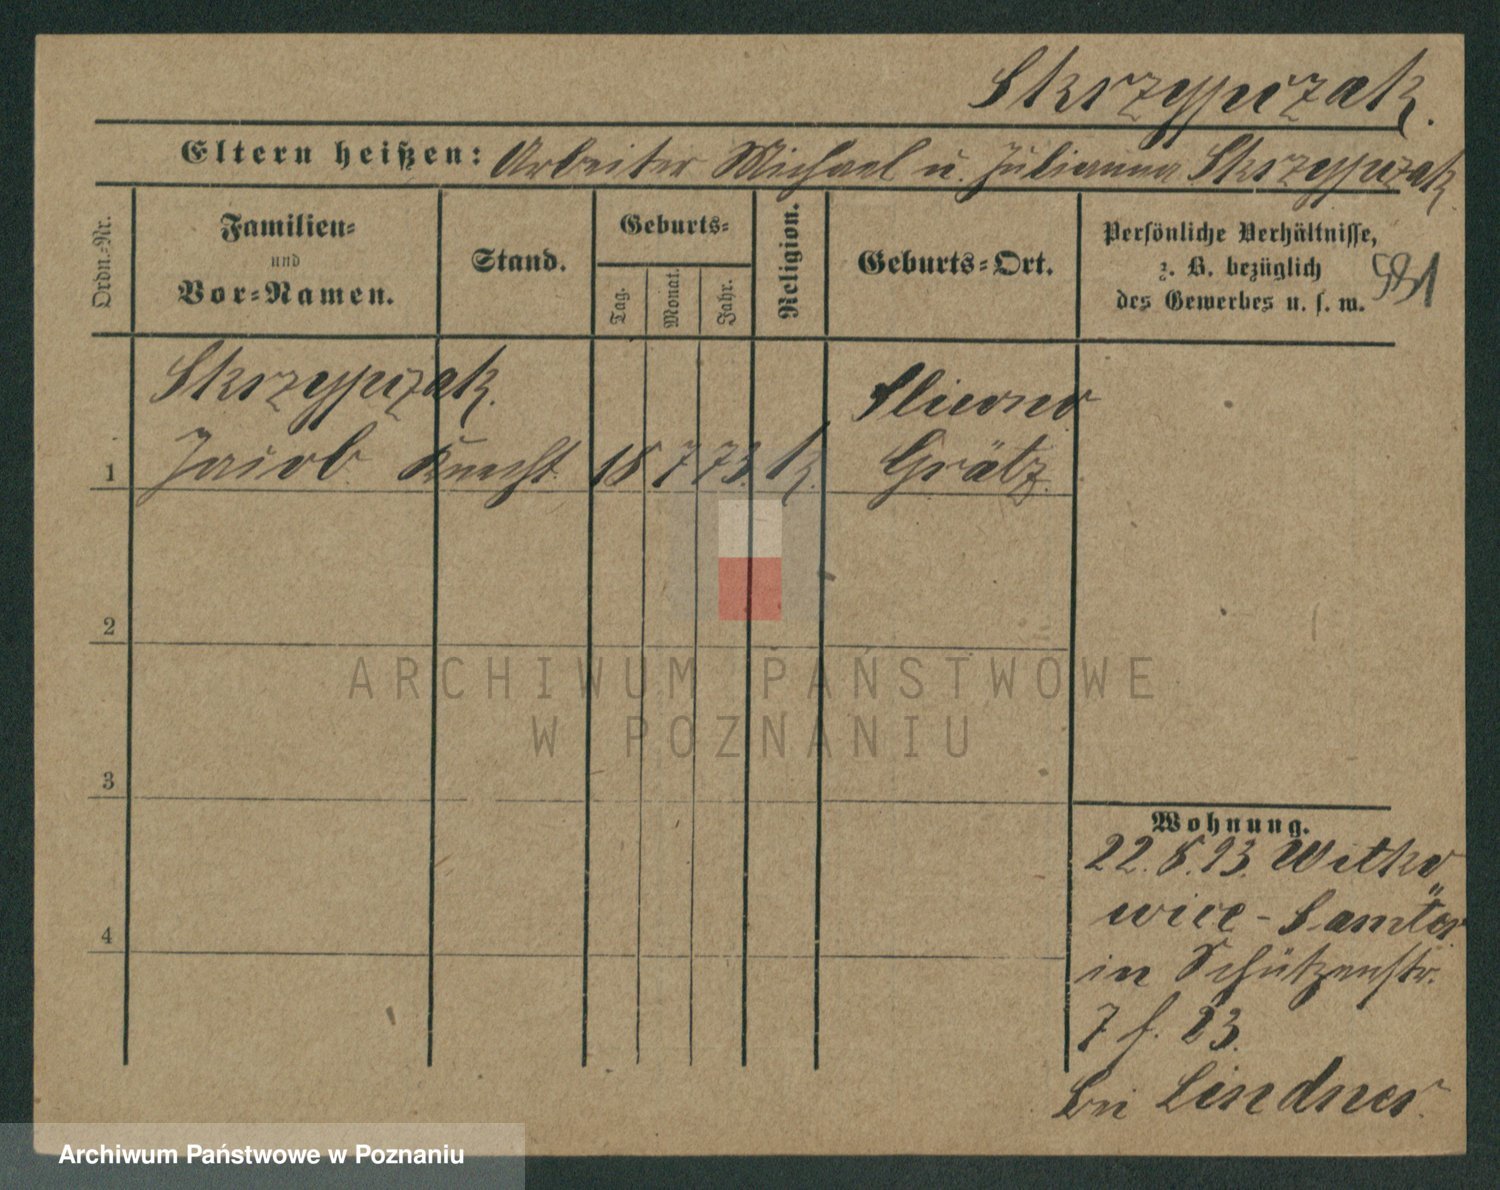 Skrzypczak.
Eltern heißen: Arbeiter Michael u. Julianna Skrzypczak
Ordn.-Nr.
Familien-
und
Vor-Namen.
Stand.
Geburts-
Tag.
Monat.
Jahr.
Religion.
Geburts-Ort.
Persönliche Verhältnisse,
z. B. bezüglich
des Gewerbes u. s. w.
Skrzypczak.
1 Jacob Knecht 18 7 73. K. Grätz.
2
3
4
Wohnung.
22. 8. 93. Witko
wice - Samter
in Schützenstr.
7 f. 23.
bei Lindner.
ARCHIWUM PAŃSTWOWE
W POZNANIU
Archiwum Państwowe w Poznaniu